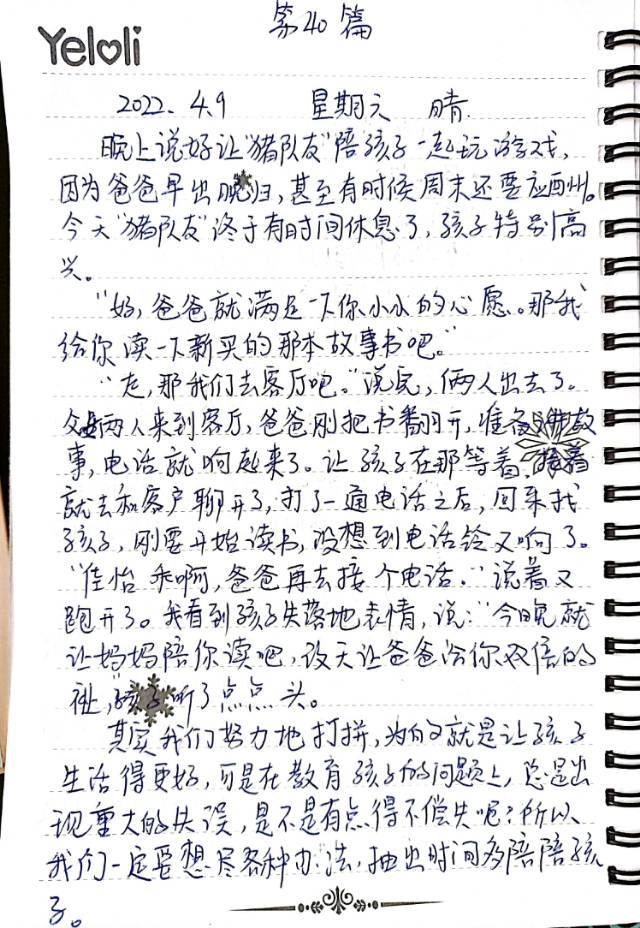 第40篇
Yeloli
2022.4.9 星期六 晴
晚上说好让“猪队友”陪孩子一起玩游戏,
因为爸爸早出晚归,甚至有时候周末还要应酬。
今天“猪队友”终于有时间休息了,孩子特别高
兴。
“好,爸爸就满足一下你小小的心愿。那我
给你读一下新买的那本故事书吧。”
“走,那我们去客厅吧。”说完,俩人出去了。
父女两人来到客厅,爸爸刚把书翻开,准备讲故
事,电话就响起来了。让孩子在那等着,接着
就去和客户聊开了,打了一通电话之后,回来找
孩子,刚要开始读书,没想到电话铃又响了。
“佳怡乖啊,爸爸再去接个电话.”说着又
跑开了。我看到孩子失落地表情,说:“今晚就
让妈妈陪你读吧,改天让爸爸给你双倍的
补,”孩子听了点点头。
其实我们努力地打拼,为的就是让孩子
生活得更好,可是在教育孩子的问题上,总是出
现重大的失误,是不是有点得不偿失呢?所以、
我们一定要想尽各种办法,抽出时间多陪陪孩
子。